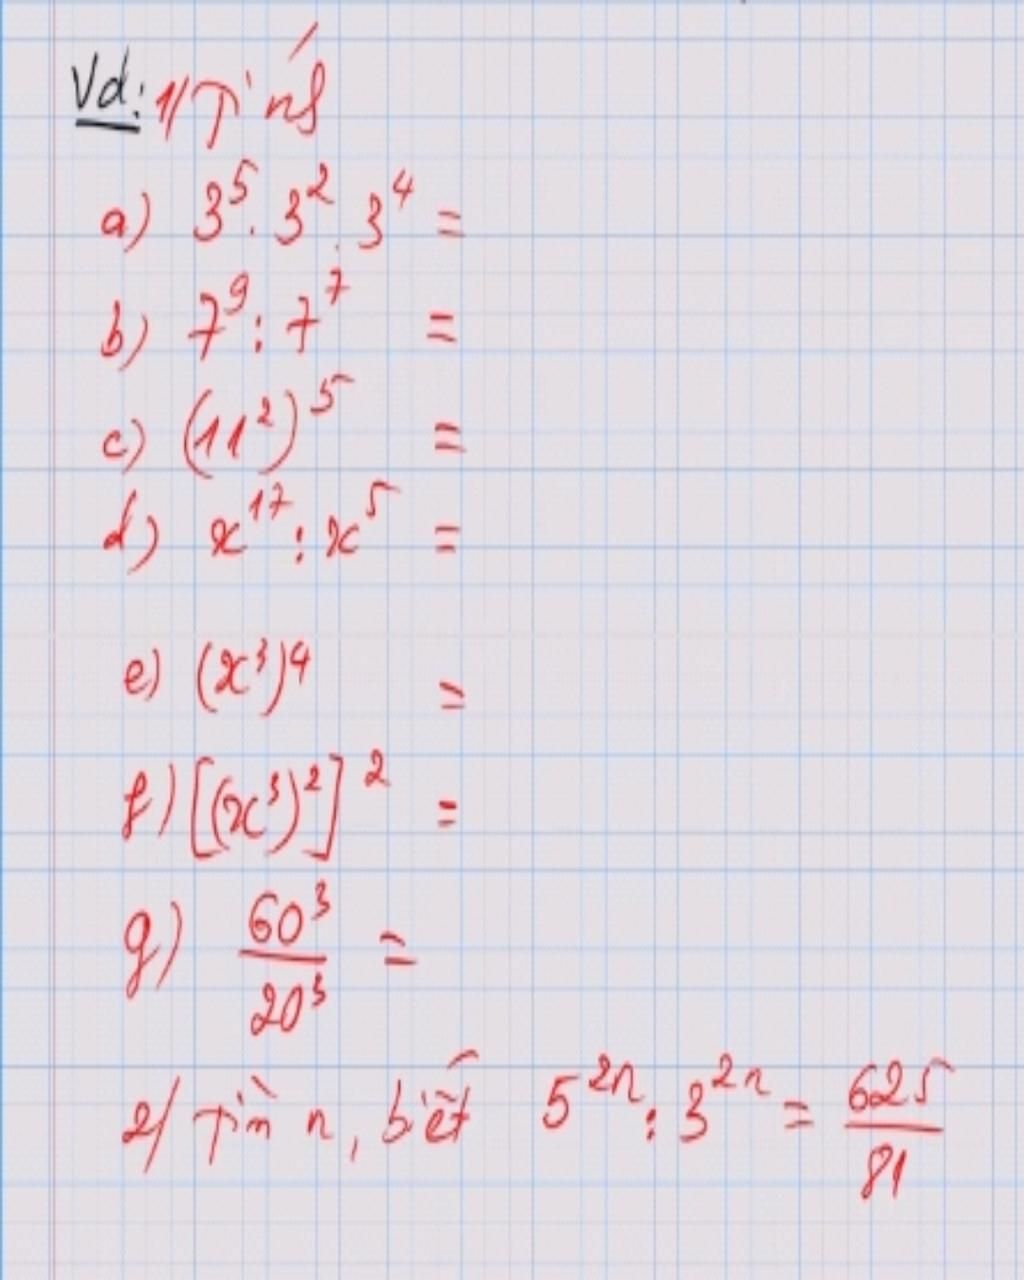 Vd: 1/ Tính
a) 3⁵ . 3² . 3⁴ =
b) 7⁹ : 7⁷ =
c) (11²)⁵ =
d) x¹⁷ : x⁵ =
e) (x³)⁴ =
f) [(x³)²]² =
g) 60³/20³ =
2/ Tìm n, biết 5²ⁿ : 3²ⁿ = 625/81